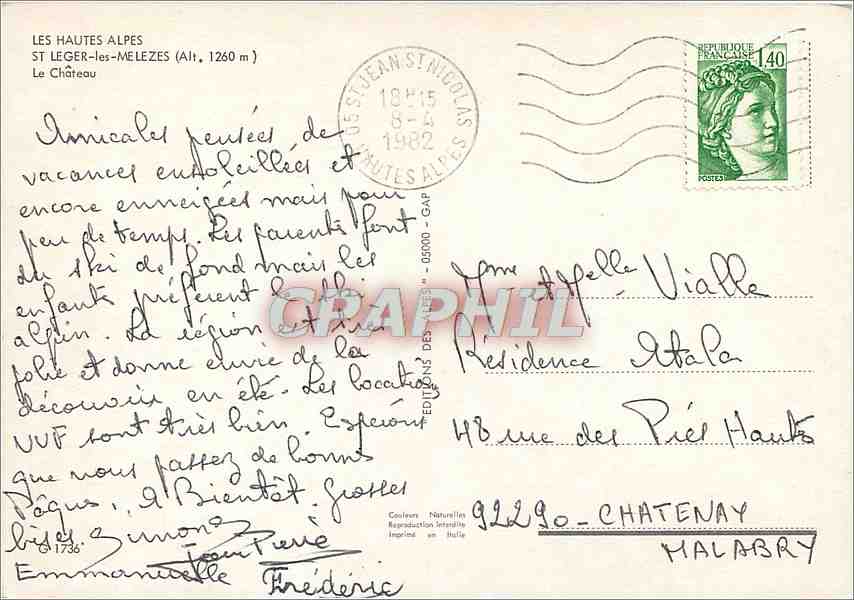 LES HAUTES ALPES
ST LEGER-les-MELEZES (Alt. 1260 m)
Le Château
05 ST JEAN-ST NICOLAS
18H15
8-4
1982
HAUTES ALPES
REPUBLIQUE
FRANCAISE
1,40
POSTES
Amicales pensées de
vacances ensoleillées et
encore enneigées mais pour
peu de temps. Les parents font
du ski de fond mais les
enfants préfèrent le ski
alpin. La région est très
jolie et donne envie de la
découvrir en été. Les locations
VVF sont très bien. Espérons
que vous passez de bonnes
Pâques. A Bientôt. Grosses
bises. Simone
Jean Pierre
Emmanuelle Frédéric
G 1736
EDITIONS DES "ALPES" - 05000 - GAP
CPAPHIL
Mme et Melle Vialle
Résidence Atala
48 rue des Piés Hauts
92290 - CHATENAY
MALABRY
Couleurs Naturelles
Reproduction Interdite
Imprimé en Italie